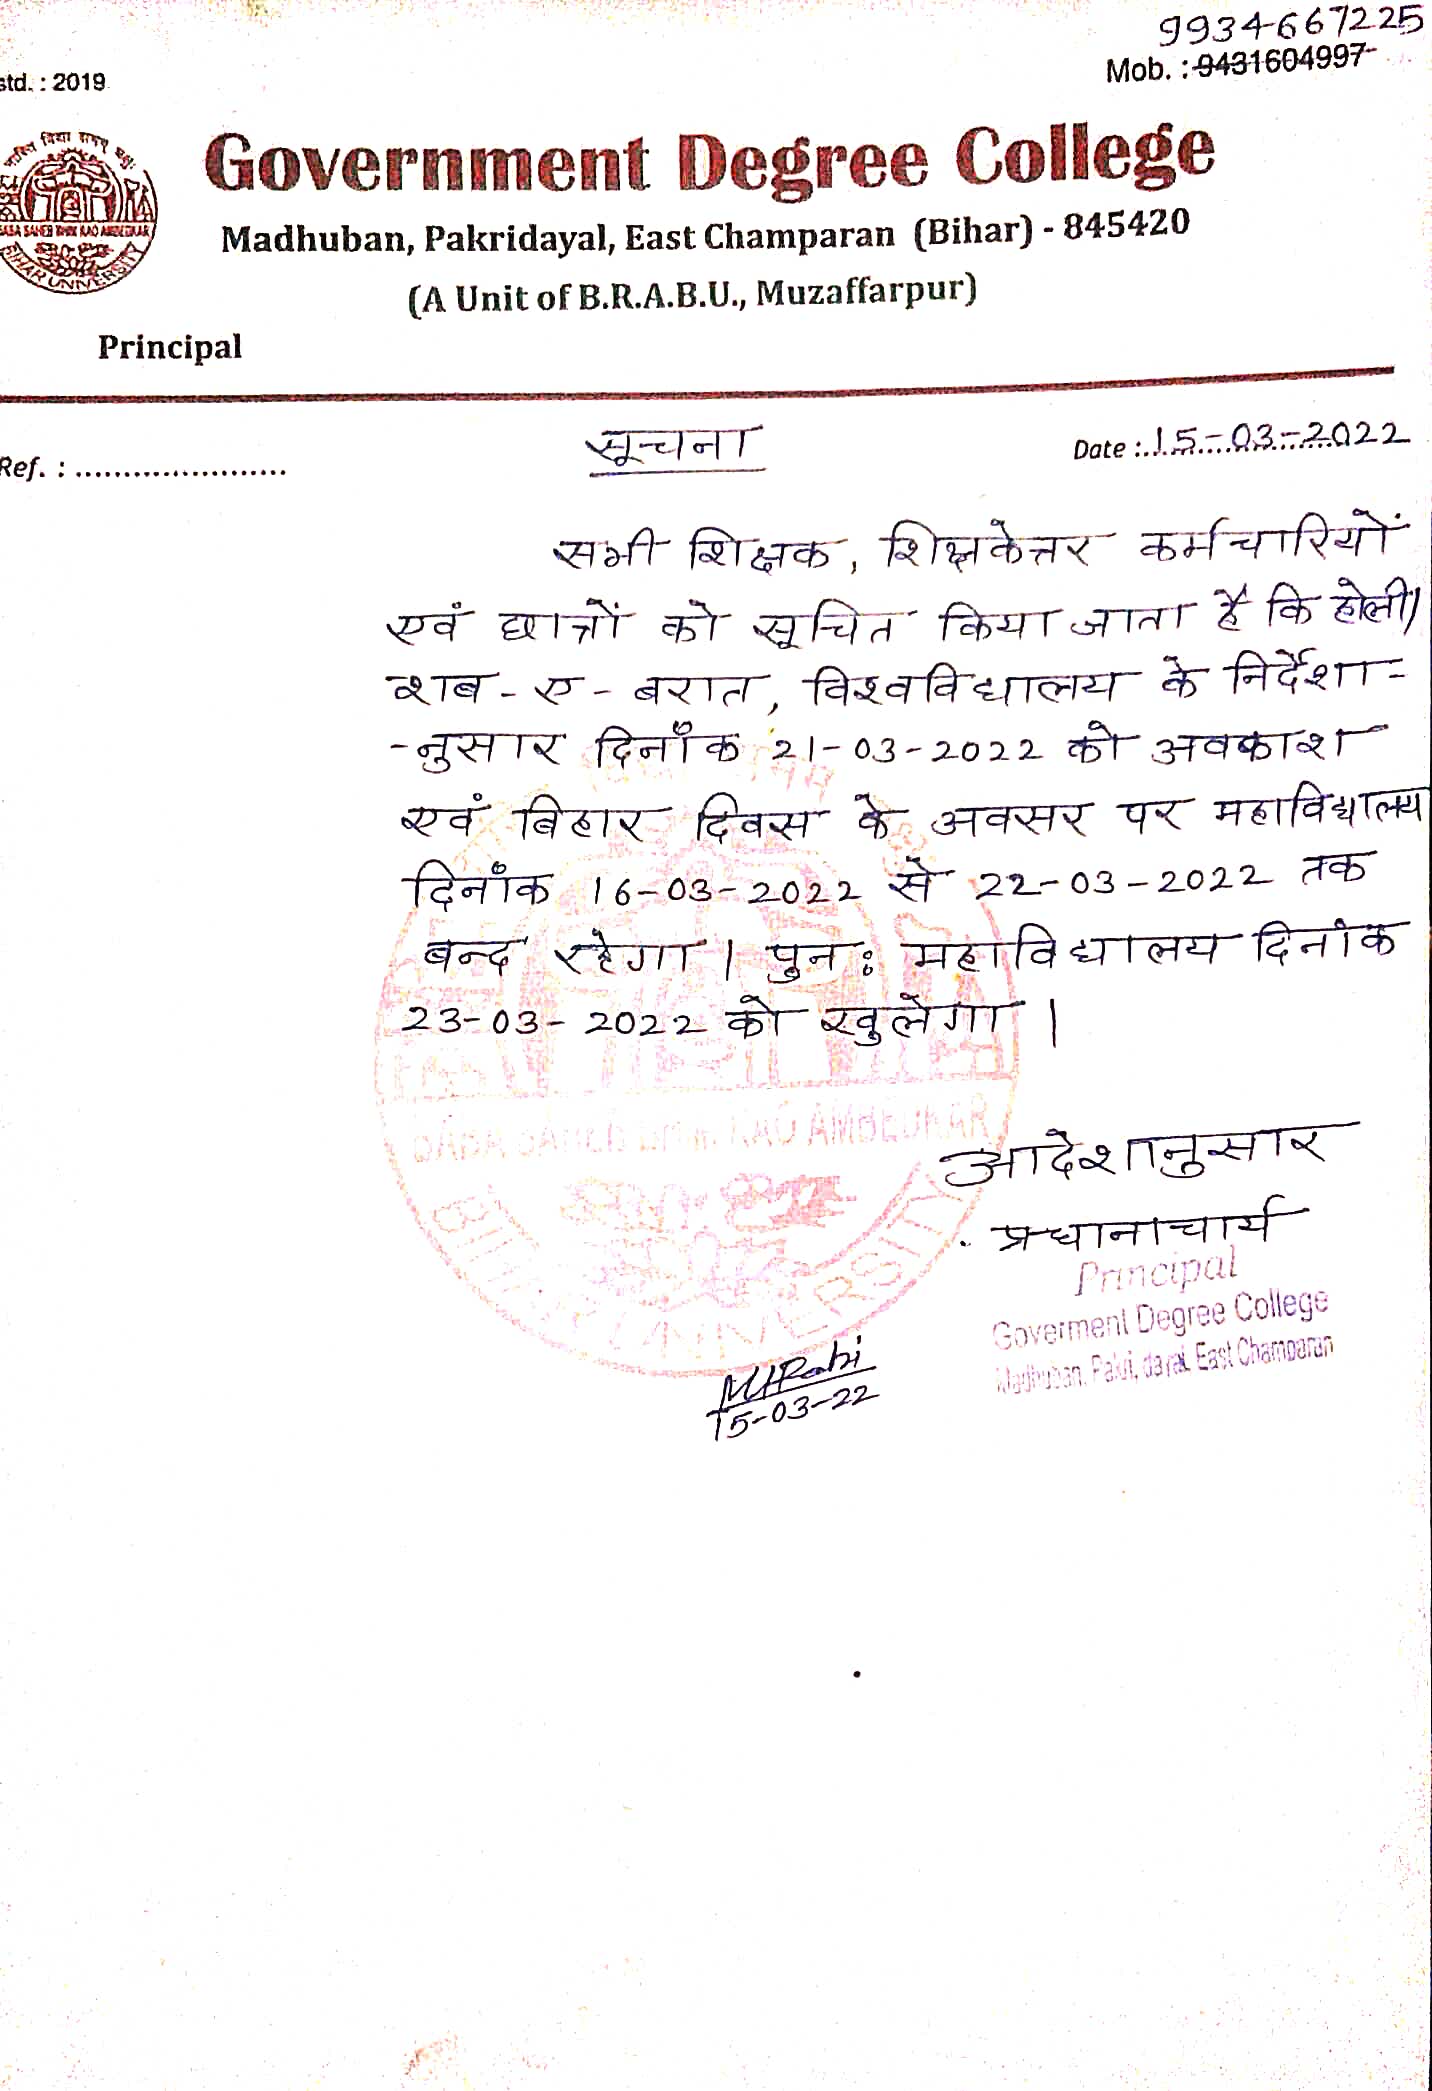 9934667225
std. : 2019
Mob. : 9431604997
Government Degree College
Madhuban, Pakridayal, East Champaran (Bihar) - 845420
(A Unit of B.R.A.B.U., Muzaffarpur)
Principal
BABA SAHEB BHIM RAO AMBEDKAR
BIHAR UNIVERSITY
Ref. : ......................
सूचना
Date : 15-03-2022
सभी शिक्षक, शिक्षकेत्तर कर्मचारियों
एवं छात्रों को सूचित किया जाता है कि होली/
शब-ए-बरात, विश्वविद्यालय के निर्देशा-
-नुसार दिनाँक 21-03-2022 को अवकाश
एवं बिहार दिवस के अवसर पर महाविद्यालय
दिनाँक 16-03-2022 से 22-03-2022 तक
बन्द रहेगा। पुनः महाविद्यालय दिनांक
23-03-2022 को खुलेगा ।
आदेशानुसार
प्रधानाचार्य
Principal
Goverment Degree College
Madhuban, East Champaran
15-03-22